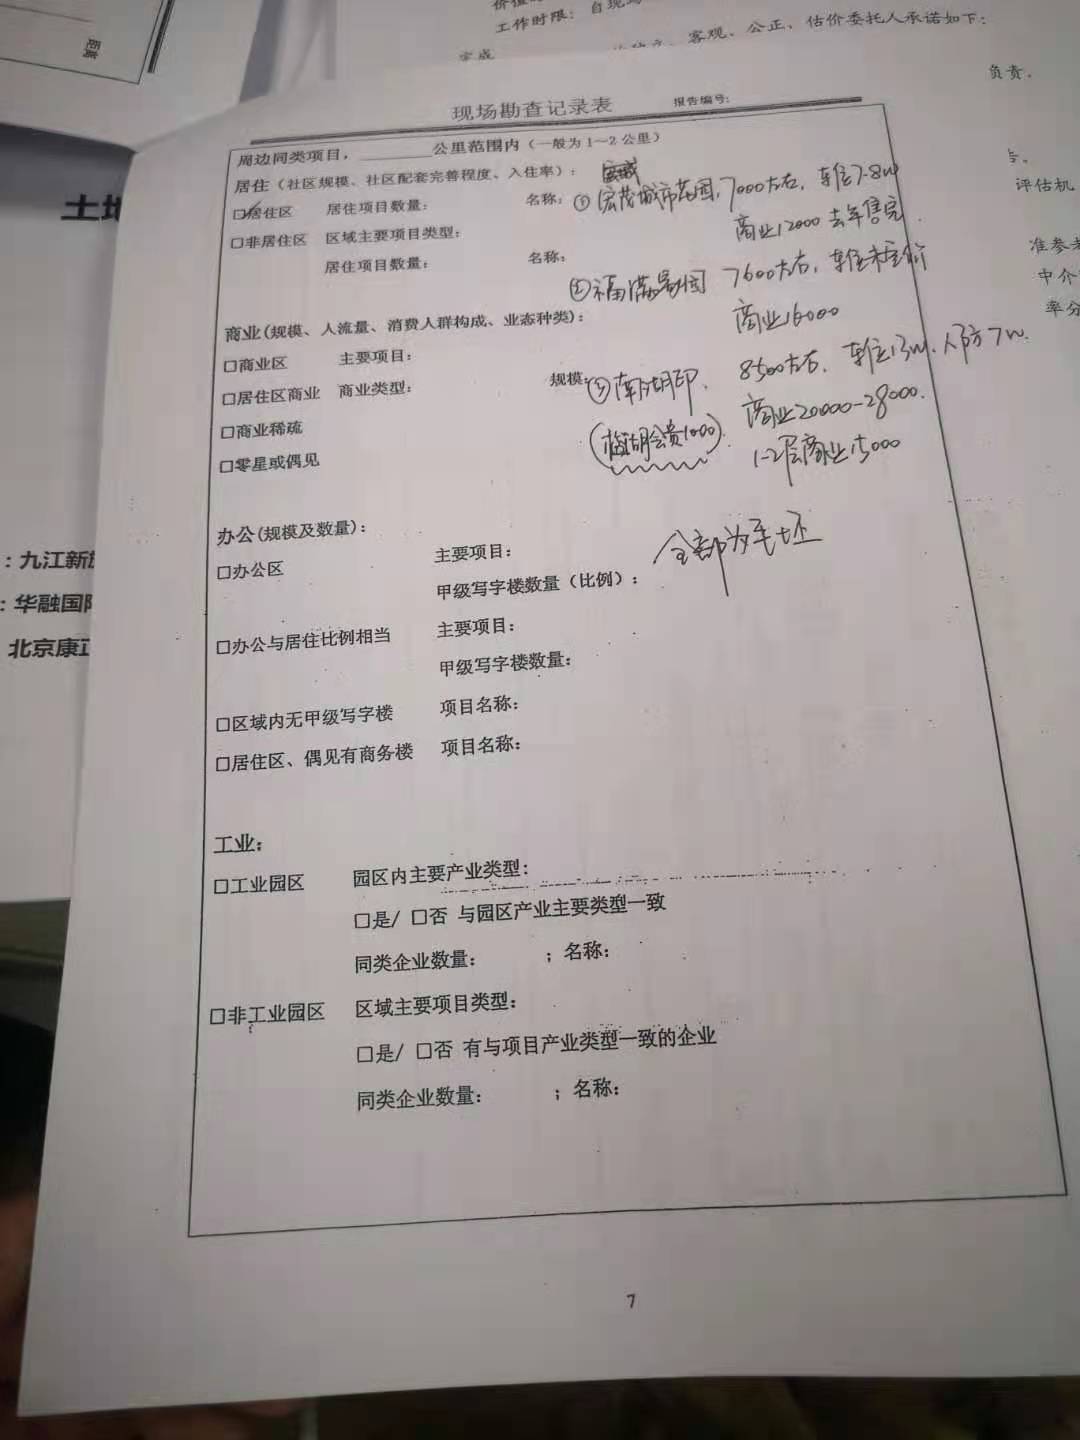 工作时限：自现
客观、公正、估价委托人承诺如下：
完成
负责。
距离
评估机
准参考
中介
率分
土地
：九江新旅
：华融国际
北京康正
现场勘查记录表
报告编号：
周边同类项目，________公里范围内（一般为1～2公里）
居住（社区规模、社区配套完善程度、入住率）：
☑居住区 居住项目数量： 名称：①宏茂城市花园，7000左右，车位7-8w
商业12000 去年售完.
□非居住区 区域主要项目类型：
居住项目数量： 名称：
②福满景园 7600左右，车位未定价
商业16000
商业(规模、人流量、消费人群构成、业态种类)：
□商业区 主要项目：
□居住区商业 商业类型： 规模：③南湖印、8500左右，车位13w，人防7w.
商业20000-28000.
□商业稀疏
(临湖会贵1000). 1-2层商业15000
□零星或偶见
办公(规模及数量)：
□办公区 主要项目： 全部为毛坯
甲级写字楼数量（比例）：
□办公与居住比例相当 主要项目：
甲级写字楼数量：
□区域内无甲级写字楼 项目名称：
□居住区、偶见有商务楼 项目名称：
工业：
□工业园区 园区内主要产业类型：
□是/ □否 与园区产业主要类型一致
同类企业数量： ；名称：
□非工业园区 区域主要项目类型：
□是/ □否 有与项目产业类型一致的企业
同类企业数量： ；名称：
7